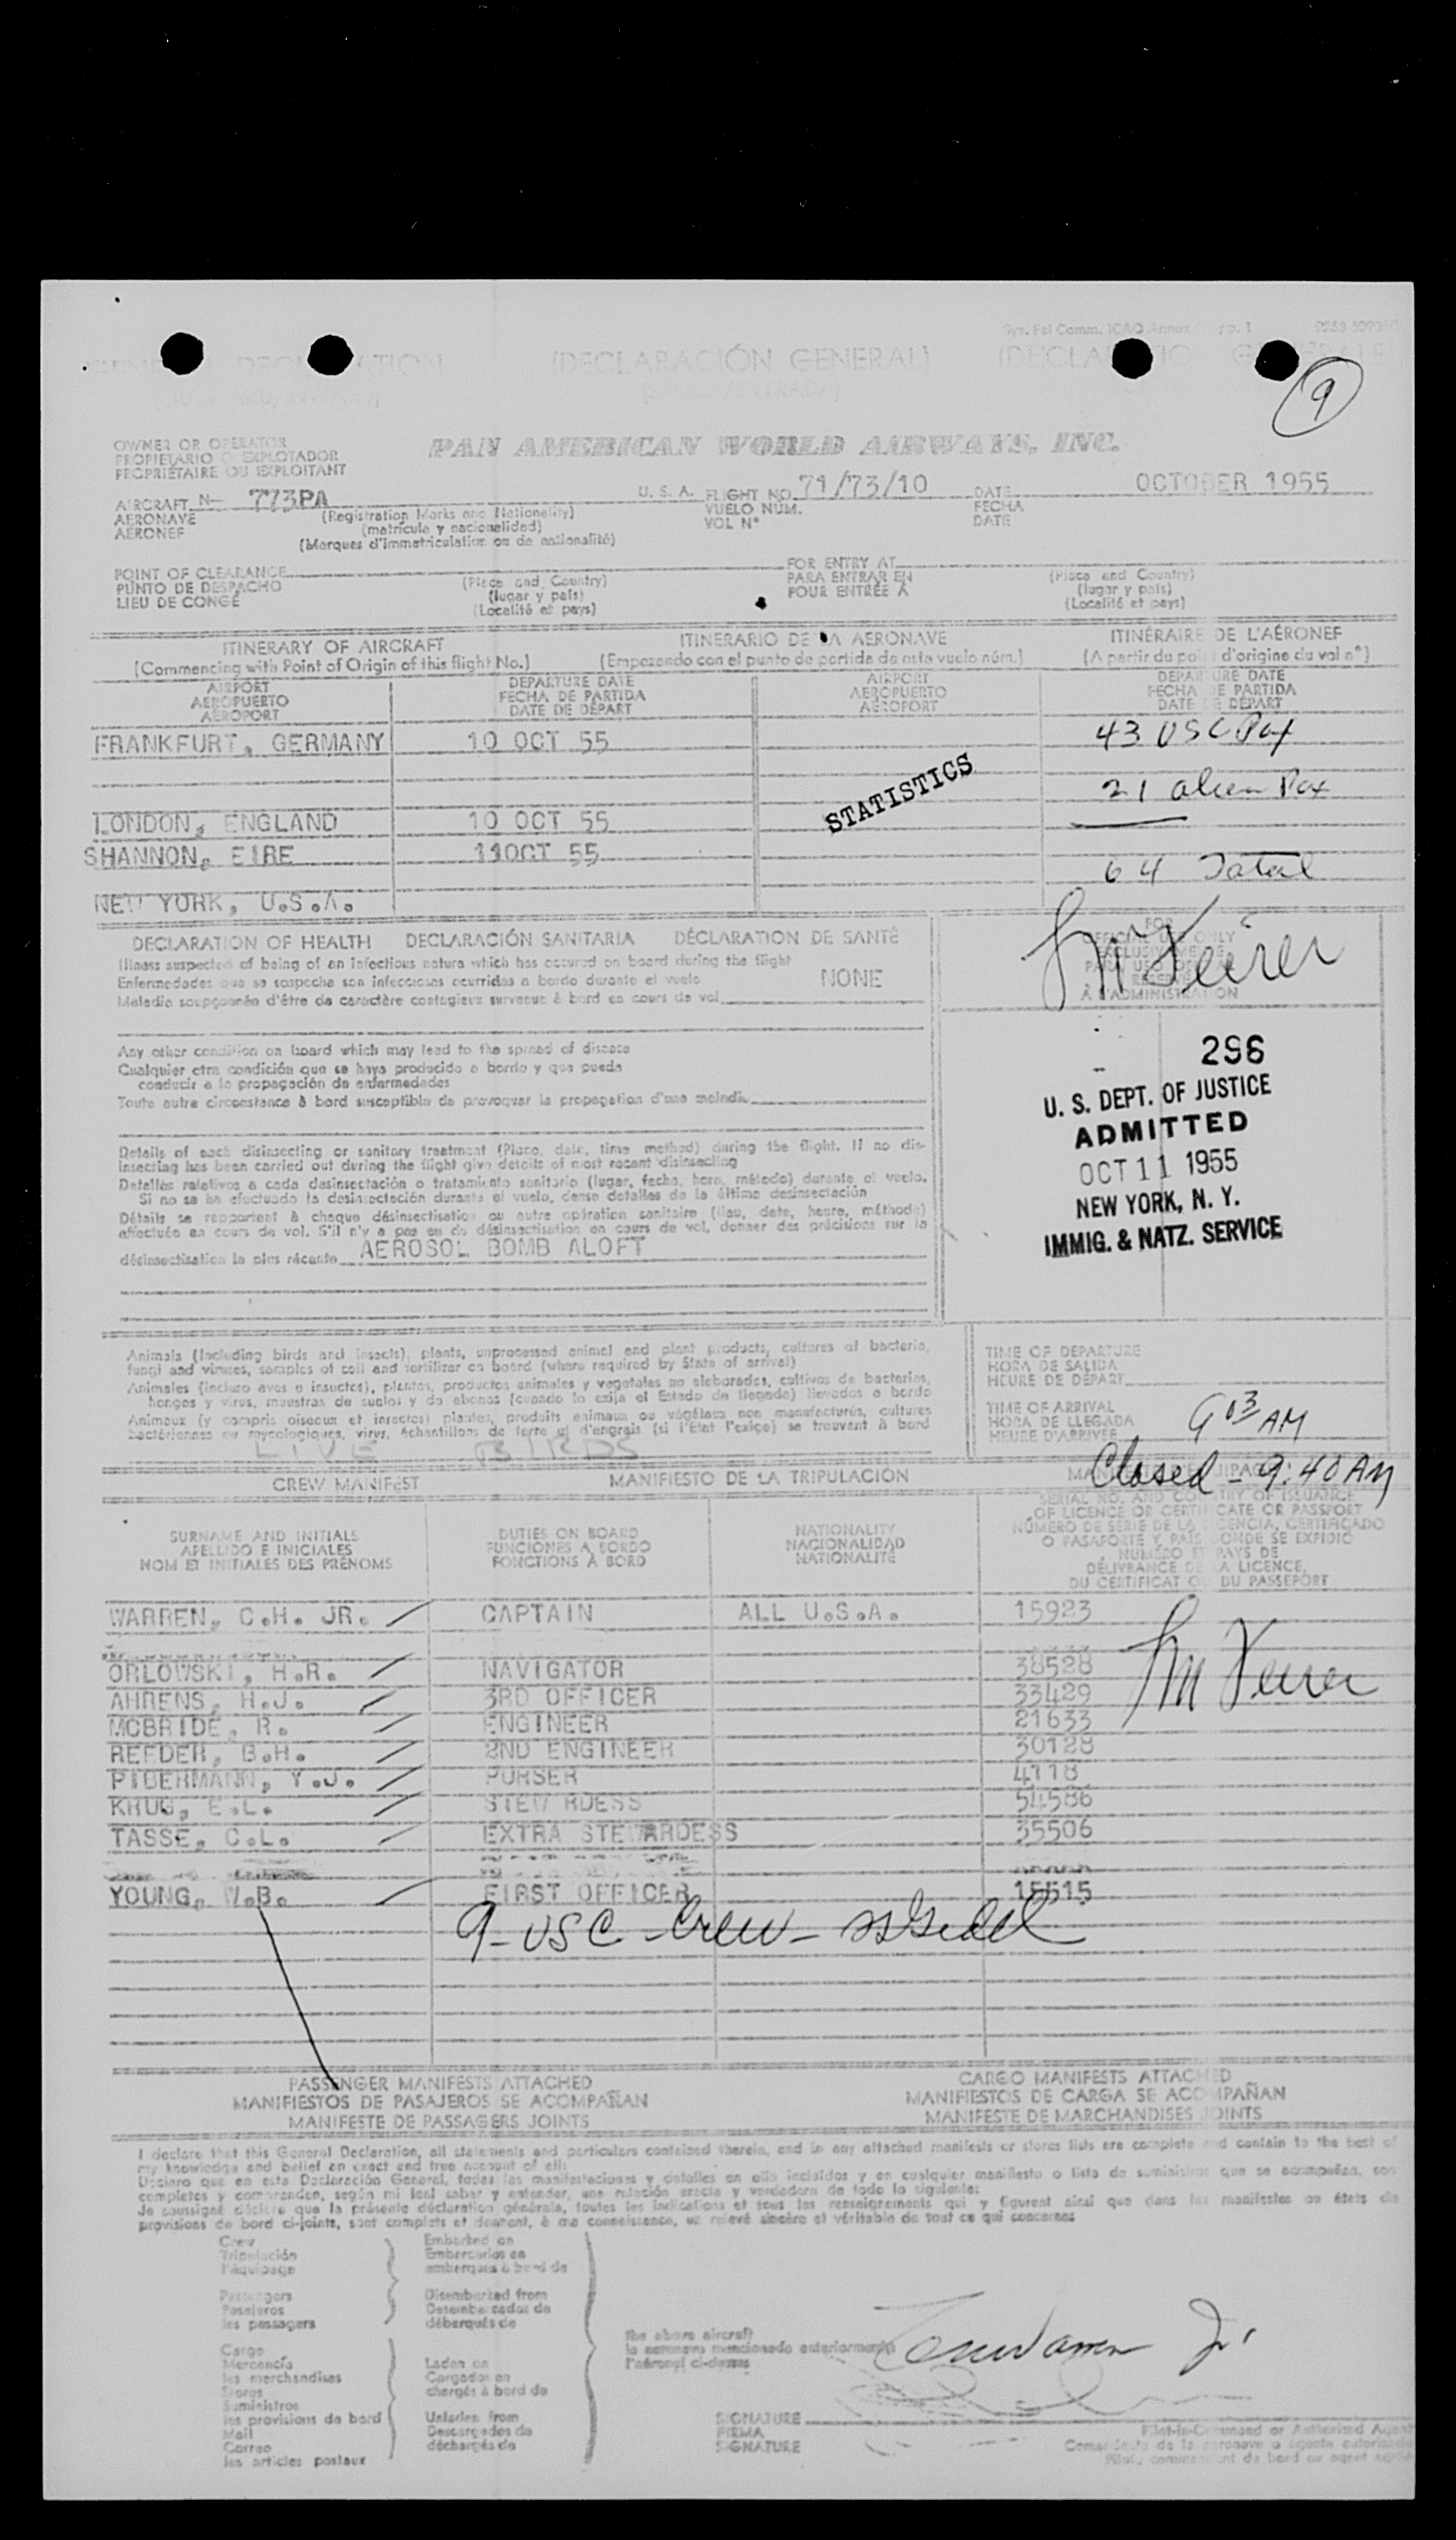 (DECLARACIÓN GENERAL)
9
OWNER OR OPERATOR
PROPIETARIO O EXPLOTADOR
PROPRIÉTAIRE OU EXPLOITANT
PAN AMERICAN WORLD AIRWAYS, INC.
AIRCRAFT N- 773PA U. S. A. FLIGHT NO. 71/73/10 DATE OCTOBER 1955
AERONAVE (Registration Marks and Nationality) VUELO NÚM. FECHA
AÉRONEF (matrícula y nacionalidad) VOL N° DATE
(Marques d'immatriculation ou de nationalité)
POINT OF CLEARANCE FOR ENTRY AT
PUNTO DE DESPACHO (Place and Country) PARA ENTRAR EN (Place and Country)
LIEU DE CONGÉ (lugar y país) POUR ENTRÉE À (lugar y país)
(Localité et pays) (Localité et pays)
ITINERARY OF AIRCRAFT ITINERARIO DE LA AERONAVE ITINÉRAIRE DE L'AÉRONEF
(Commencing with Point of Origin of this flight No.) (Empezando con el punto de partida de este vuelo núm.) (A partir du point d'origine du vol n°)
AIRPORT DEPARTURE DATE AIRPORT DEPARTURE DATE
AEROPUERTO FECHA DE PARTIDA AEROPUERTO FECHA DE PARTIDA
AÉROPORT DATE DE DÉPART AÉROPORT DATE DE DÉPART
FRANKFURT, GERMANY 10 OCT 55 43 USC Pax
21 alien Pax
STATISTICS
LONDON, ENGLAND 10 OCT 55
SHANNON, EIRE 11OCT 55
64 Total
NEW YORK, U.S.A.
DECLARATION OF HEALTH DECLARACIÓN SANITARIA DÉCLARATION DE SANTÉ
Illness suspected of being of an infectious nature which has occured on board during the flight
Enfermedades que se sospecha son infecciosas ocurridas a bordo durante el vuelo NONE
Maladie soupçonnée d'être de caractère contagieux survenue à bord en cours de vol
FOR
OFFICIAL USE ONLY
À L'ADMINISTRATION
Any other condition on board which may lead to the spread of disease
Cualquier otra condición que se haya producido a bordo y que pueda
conducir a la propagación de enfermedades
Toute autre circonstance à bord susceptible de provoquer la propagation d'une maladie
296
U. S. DEPT. OF JUSTICE
ADMITTED
OCT 11 1955
NEW YORK, N. Y.
IMMIG. & NATZ. SERVICE
Details of each disinsecting or sanitary treatment (Place, date, time method) during the flight. If no dis-
insecting has been carried out during the flight give details of most recent disinsecting
Detalles relativos a cada desinsectación o tratamiento sanitario (lugar, fecha, hora, método) durante el vuelo.
Si no se ha efectuado la desinsectación durante el vuelo, dense detalles de la última desinsectación
Détails se rapportant à chaque désinsectisation ou autre opération sanitaire (lieu, date, heure, méthode)
effectuée en cours de vol. S'il n'y a pas eu de désinsectisation en cours de vol, donner des précisions sur la
désinsectisation la plus récente AEROSOL BOMB ALOFT
Animals (including birds and insects), plants, unprocessed animal and plant products, cultures of bacteria,
fungi and viruses, samples of soil and fertilizer on board (where required by State of arrival)
Animales (incluso aves e insectos), plantas, productos animales y vegetales no elaborados, cultivos de bacterias,
hongos y virus, muestras de suelos y de abonos (cuando lo exija el Estado de llegada) llevados a bordo
Animaux (y compris oiseaux et insectes) plantes, produits animaux ou végétaux non manufacturés, cultures
bactériennes ou mycologiques, virus, échantillons de terre et d'engrais (si l'Etat l'exige) se trouvant à bord
LIVE BIRDS
TIME OF DEPARTURE
HORA DE SALIDA
HEURE DE DÉPART
TIME OF ARRIVAL
HORA DE LLEGADA
HEURE D'ARRIVÉE 9 03 AM
Closed - 9:40 AM
CREW MANIFEST MANIFIESTO DE LA TRIPULACIÓN
SURNAME AND INITIALS DUTIES ON BOARD NATIONALITY SERIAL NO. AND COUNTRY OF ISSUANCE
APELLIDO E INICIALES FUNCIONES A BORDO NACIONALIDAD OF LICENCE OR CERTIFICATE OR PASSPORT
NOM ET INITIALES DES PRÉNOMS FONCTIONS À BORD NATIONALITÉ NÚMERO DE SERIE DE LA LICENCIA, CERTIFICADO
O PASAPORTE Y PAÍS DONDE SE EXPIDIÓ
NUMÉRO ET PAYS DE
DÉLIVRANCE DE LA LICENCE,
DU CERTIFICAT OU DU PASSEPORT
WARREN, C.H. JR. CAPTAIN ALL U.S.A. 15923
ORLOWSKI, H.R. NAVIGATOR 38528
AHRENS, H.J. 3RD OFFICER 33429
MCBRIDE, R. ENGINEER 21633
REEDER, B.H. 2ND ENGINEER 30128
PIDERMANN, Y.J. PURSER 4118
KRUG, E.L. STEWARDESS 54586
TASSE, C.L. EXTRA STEWARDESS 35506
YOUNG, W.B. FIRST OFFICER 15515
9 - USC - Crew -
PASSENGER MANIFESTS ATTACHED CARGO MANIFESTS ATTACHED
MANIFIESTOS DE PASAJEROS SE ACOMPAÑAN MANIFIESTOS DE CARGA SE ACOMPAÑAN
MANIFESTE DE PASSAGERS JOINTS MANIFESTE DE MARCHANDISES JOINTS
I declare that this General Declaration, all statements and particulars contained therein, and in any attached manifests or stores lists are complete and contain to the best of
my knowledge and belief an exact and true account of all:
Declaro que en esta Declaración General, todas las manifestaciones y detalles en ella incluídos y en cualquier manifiesto o lista de suministros que se acompañan, son
completos y comprenden, según mi leal saber y entender, una relación exacta y verdadera de todo lo siguiente:
Je soussigné déclare que la présente déclaration générale, toutes les indications et tous les renseignements qui y figurent ainsi que dans les manifestes ou états de
provisions de bord ci-joints, sont complets et donnent, à ma connaissance, un relevé sincère et véritable de tout ce qui concernes
Crew Embarked on
Tripulación Embarcados en
l'équipage embarqués à bord de
Passengers Disembarked from
Pasajeros Desembarcados de
les passagers débarqués de
the above aircraft
la aeronave mencionada anteriormente
l'aéronef ci-dessus
Cargo
Mercancía Laden on
les merchandises Cargados en
Stores chargés à bord de
Suministros
les provisions de bord Unladen from
Mail Descargados de
Correo déchargés de
les articles postaux
SIGNATURE
FIRMA
SIGNATURE
Pilot-in-Command or Authorized Agent